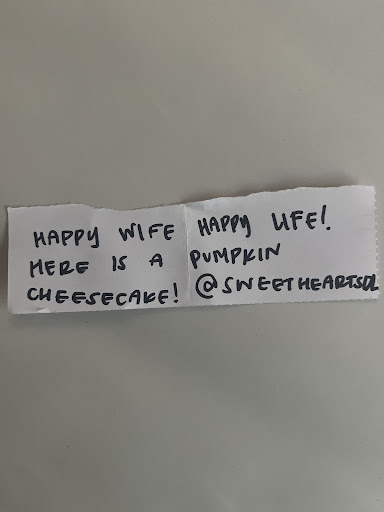 HAPPY WIFE HAPPY LIFE!
HERE IS A PUMPKIN
CHEESECAKE! @SWEETHEARTSDL